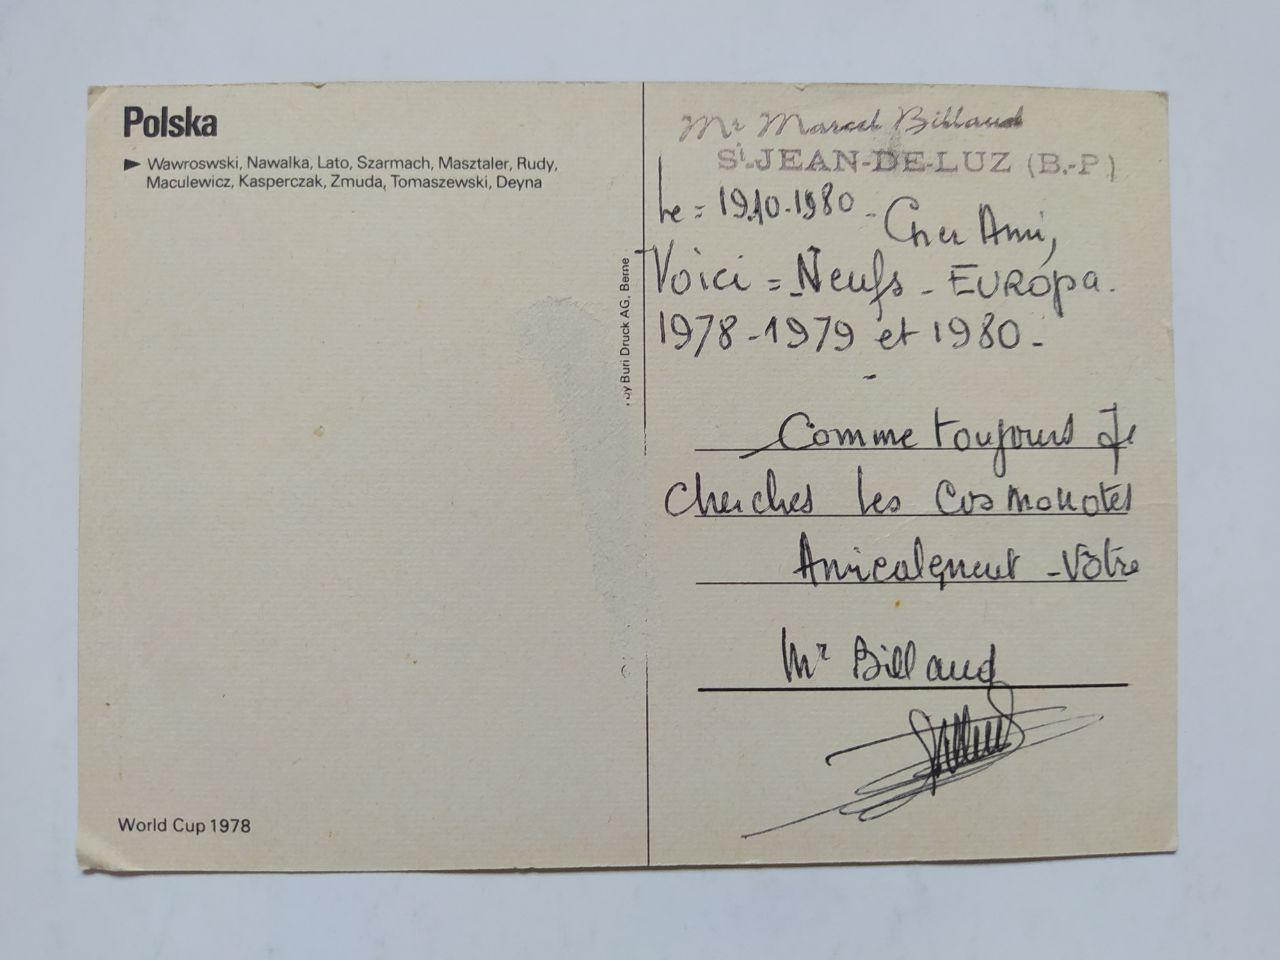 Polska
Wawroswski, Nawalka, Lato, Szarmach, Masztaler, Rudy,
Maculewicz, Kasperczak, Zmuda, Tomaszewski, Deyna
World Cup 1978
by Buri Druck AG, Berne
Mr Marcel Billaud
St.JEAN-DE-LUZ (B.-P)
Le = 19.10.1980 - Cher Ami,
Voici = Neufs - EUROpa.
1978-1979 et 1980-
Comme toujours Je
Cherches les Cosmonotes
Amicalement - Vôtre
Mr Billaud